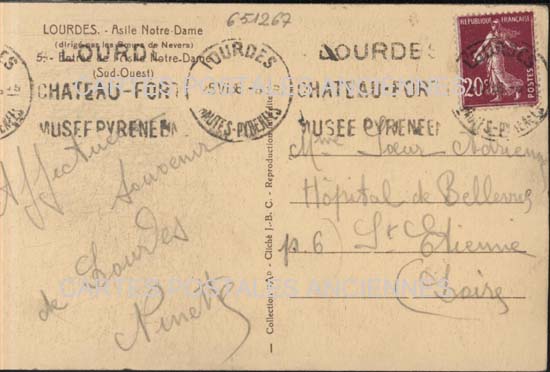 651267
LOURDES. - Asile Notre-Dame
(dirigé par les Sœurs de Nevers)
5. - Entrée de l'Asile Notre-Dame
(Sud-Ouest)
LOURDES
CHATEAU-FORT
MUSEE PYRENEEN
LOURDES
HAUTES-PYRENEES
LOURDES
CHATEAU-FORT
MUSEE PYRENEEN
REPUBLIQUE FRANÇAISE
20c
POSTES
Affectueux
Souvenir
de Lourdes
Ninette
Collection "Ao" - Cliché J.-B. C. - Reproduction interdite
Mme Sœur Adrienne
Hôpital de Bellevue
p. 6) St Etienne
(Loire)
CARTES POSTALES ANCIENNES
CARTES POSTALES ANCIENNES